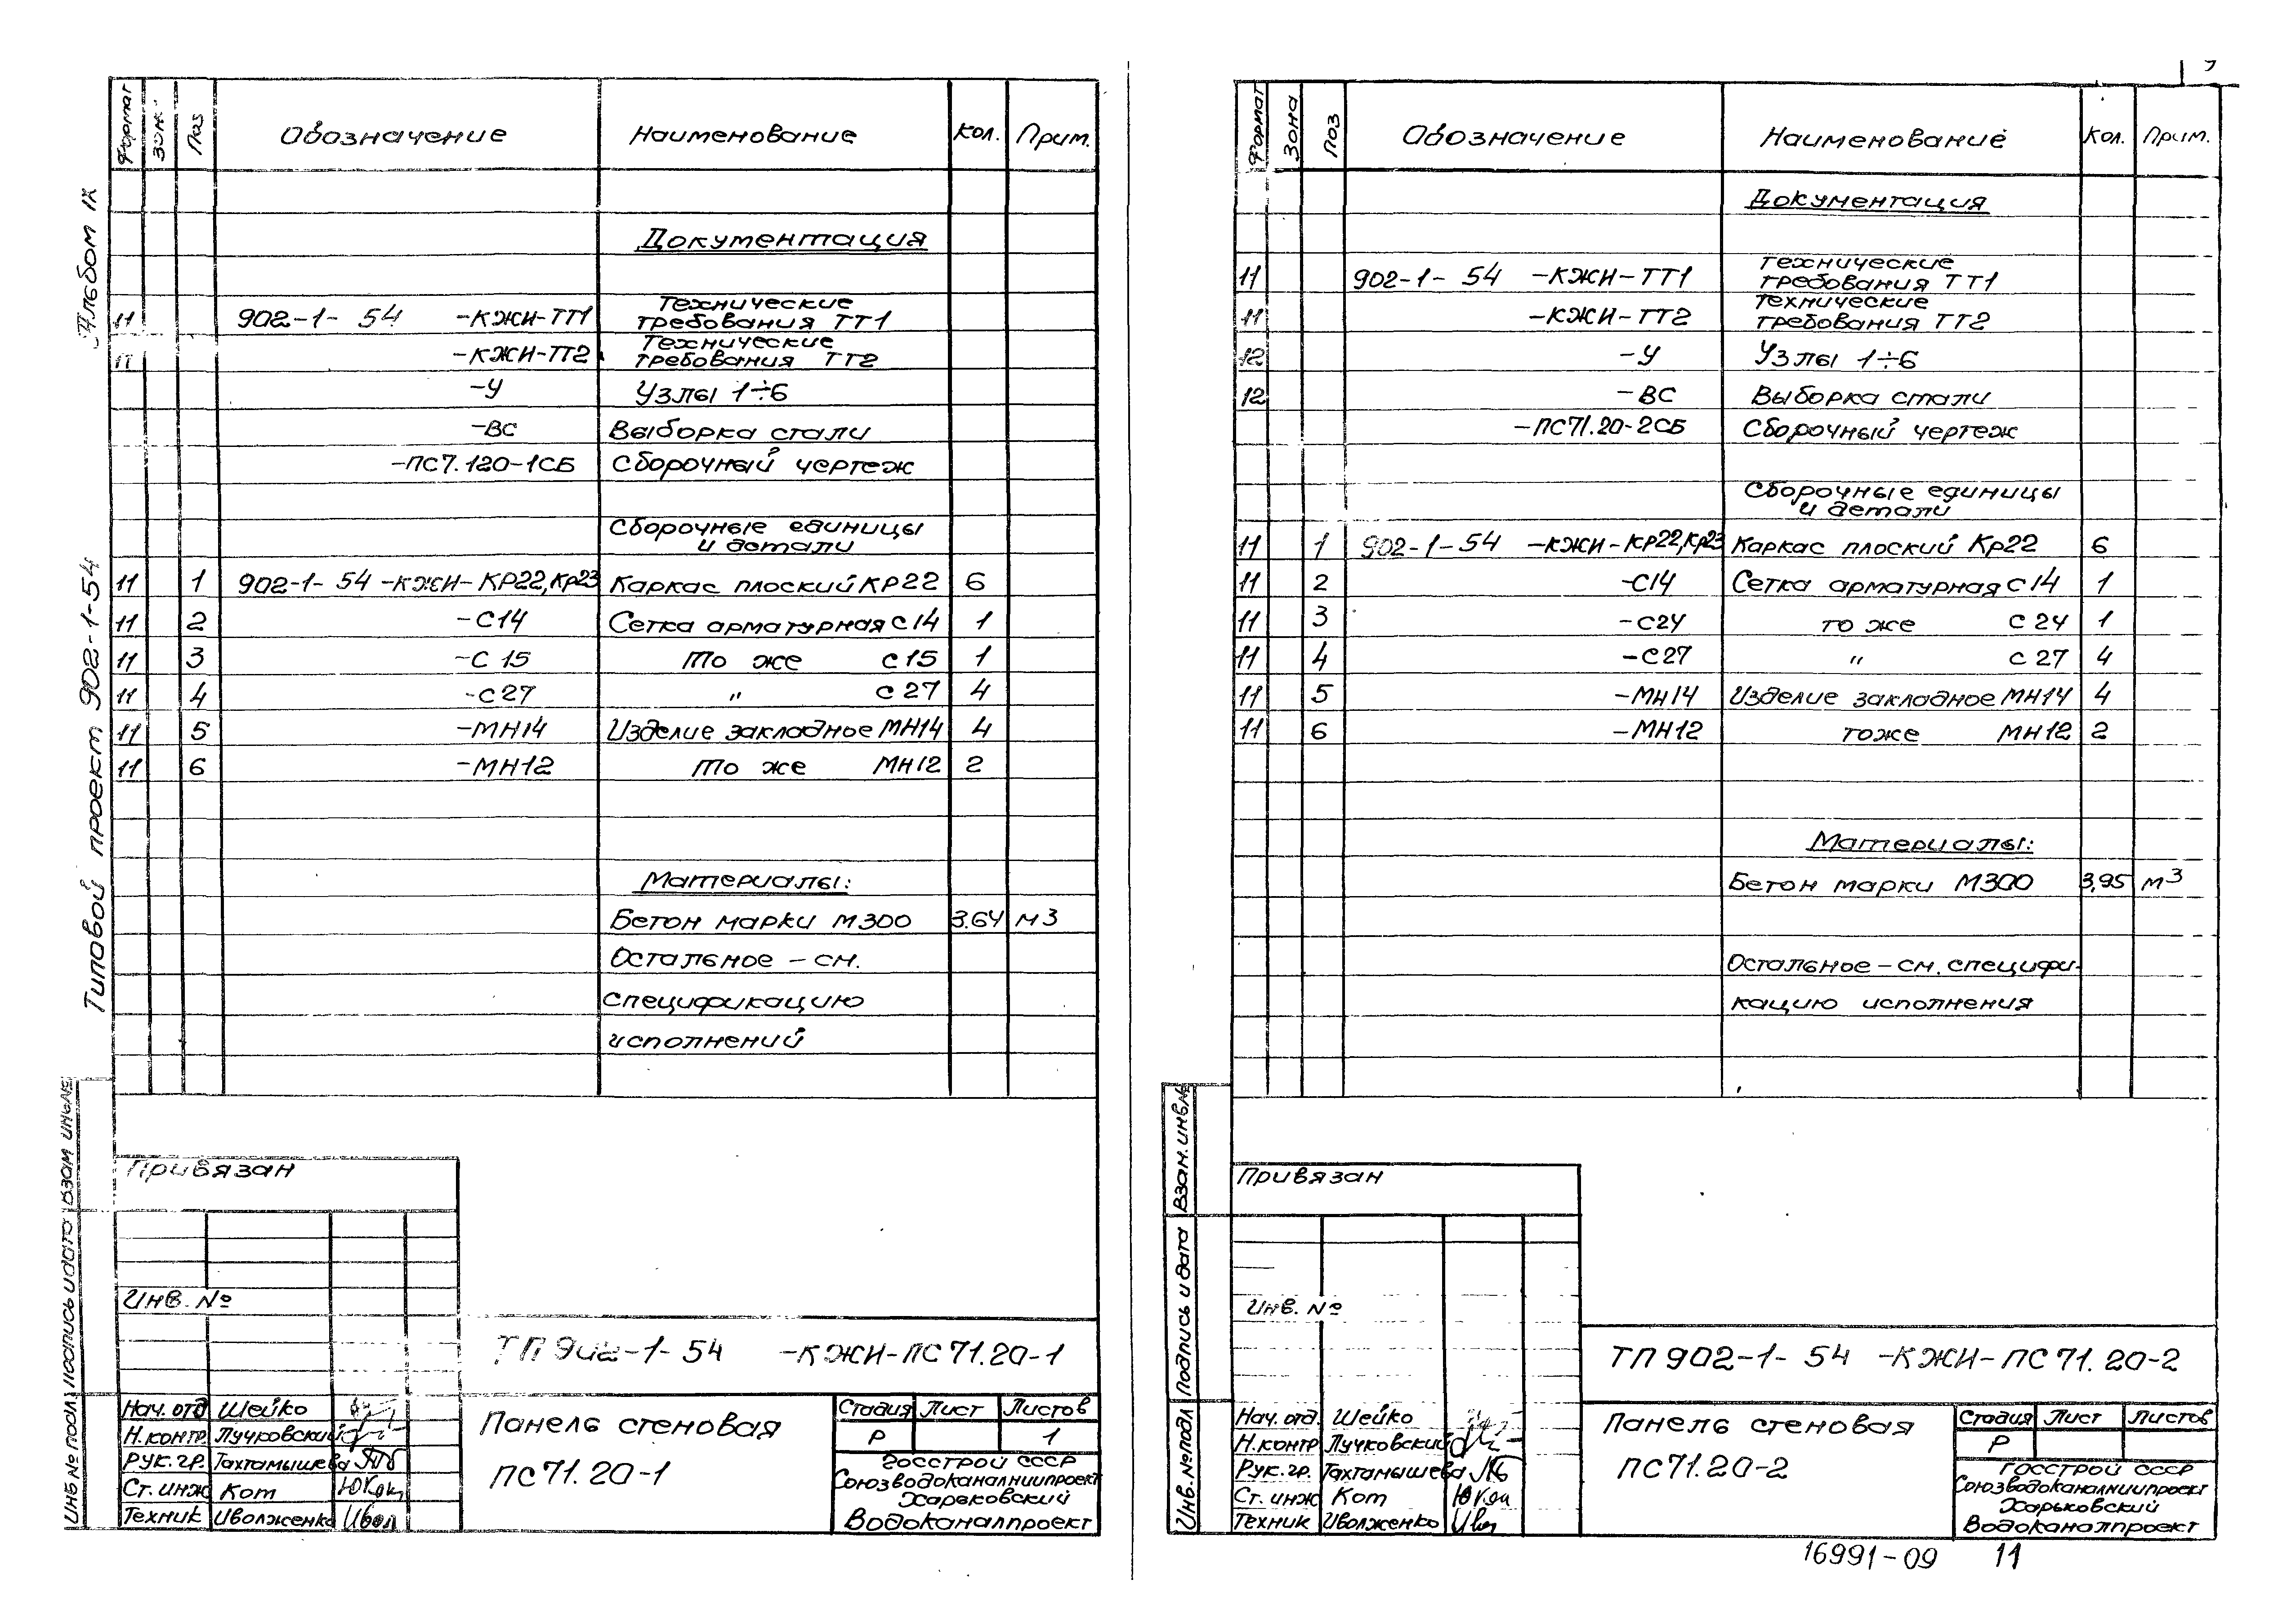 Альбом IX
Типовой проект 902-1-54
Формат Зона Поз Обозначение Наименование Кол. Прим.
Документация
11 902-1-54 -КЖИ-ТТ1 Технические
требования ТТ1
11 -КЖИ-ТТ2 Технические
требования ТТ2
-У Узлы 1÷6
-ВС Выборка стали
-ПС7.120-1СБ Сборочный чертеж
Сборочные единицы
и детали
11 1 902-1-54 -КЖИ-КР22,Кр23 Каркас плоский КР22 6
11 2 -С14 Сетка арматурная С14 1
11 3 -С15 То же С15 1
11 4 -С27 " С27 4
11 5 -МН14 Изделие закладное МН14 4
11 6 -МН12 То же МН12 2
Материалы:
Бетон марки М300 3.64 м3
Остальное - см.
спецификацию
исполнений
Привязан
Инв. №
ТП 902-1-54 -КЖИ-ПС71.20-1
Нач. отд Шейко
Н.контр. Лучковский
Рук. гр. Тахтамышева
Ст. инж Кот
Техник Иволженко
Панель стеновая
ПС71.20-1
Стадия Лист Листов
Р 1
Госстрой СССР
Союзводоканалниипроект
Харьковский
Водоканалпроект
Инв № подл Подпись и дата Взам инв№
9
Формат Зона Поз Обозначение Наименование Кол. Прим.
Документация
11 902-1-54 -КЖИ-ТТ1 Технические
требования ТТ1
11 -КЖИ-ТТ2 Технические
требования ТТ2
12 -У Узлы 1÷6
12 -ВС Выборка стали
-ПС71.20-2СБ Сборочный чертеж
Сборочные единицы
и детали
11 1 902-1-54 -КЖИ-КР22,Кр23 Каркас плоский Кр22 6
11 2 -С14 Сетка арматурная С14 1
11 3 -С24 то же С24 1
11 4 -С27 " С27 4
11 5 -МН14 Изделие закладное МН14 4
11 6 -МН12 тоже МН12 2
Материалы:
Бетон марки М300 3,95 м3
Остальное - см. специфи-
кацию исполнения
Привязан
Инв. №
ТП 902-1-54 -КЖИ-ПС71.20-2
Нач. отд. Шейко
Н.контр Лучковский
Рук. гр. Тахтамышева
Ст. инж Кот
Техник Иволженко
Панель стеновая
ПС71.20-2
Стадия Лист Листов
Р
Госстрой СССР
Союзводоканалниипроект
Харьковский
Водоканалпроект
Инв. № подл Подпись и дата Взам. инв №
16991-09 11